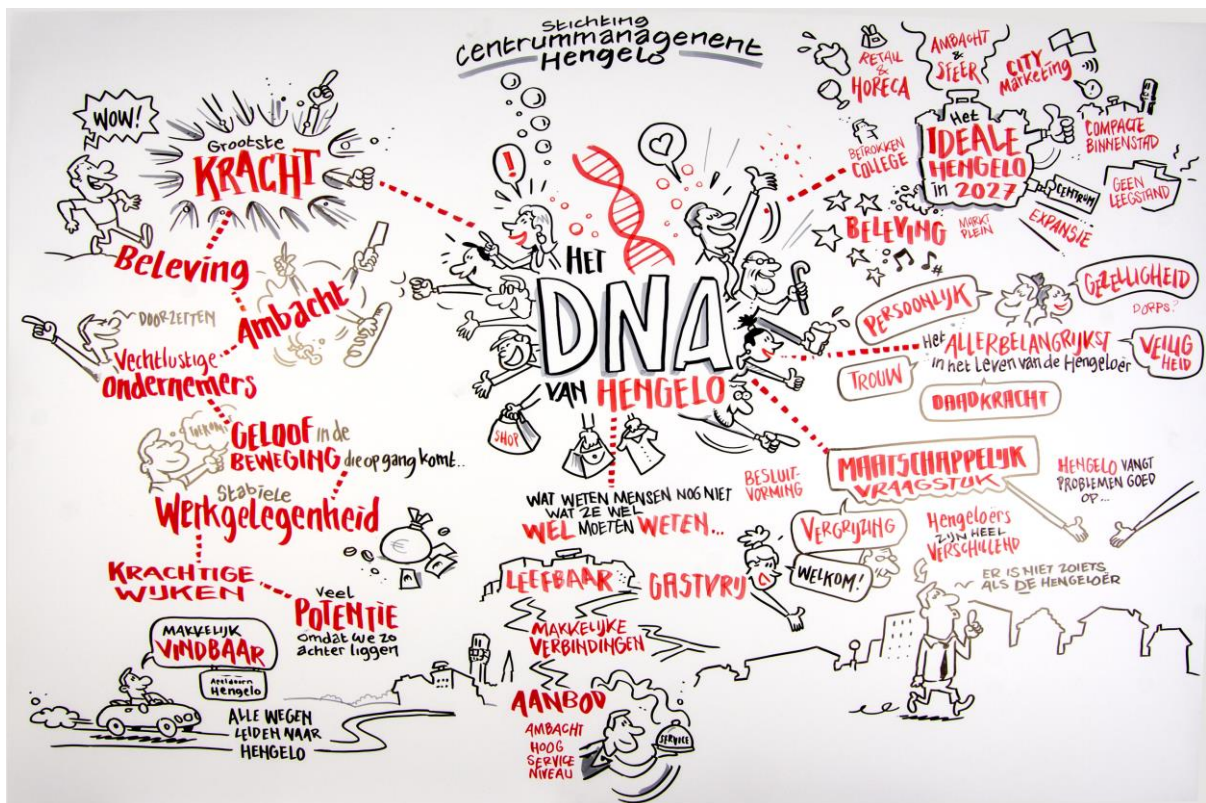 Stichting
Centrummanagement
Hengelo
WOW!
Grootste
KRACHT
Beleving
Ambacht
DOORZETTEN
Vechtlustige
ondernemers
GELOOF in de
BEWEGING die op gang komt..
Stabiele
Werkgelegenheid
KRACHTIGE
WIJKEN
Veel
POTENTIE
omdat we zo
achter liggen
MAKKELIJK
VINDBAAR
Hengelo
ALLE WEGEN
LEIDEN NAAR
HENGELO
!
HET
DNA
VAN HENGELO
SHOP
WAT WETEN MENSEN NOG NIET
WAT ZE WEL
WEL MOETEN WETEN...
LEEFBAAR
GASTVRIJ
MAKKELIJKE
VERBINDINGEN
AANBOD
AMBACHT
HOOG
SERVICE
NIVEAU
SERVICE
RETAIL
&
HORECA
AMBACHT
&
SFEER
CITY
Marketing
BETROKKEN
COLLEGE
Het
IDEALE
HENGELO
in 2027
COMPACTE
BINNENSTAD
GEEN
LEEGSTAND
CENTRUM
EXPANSIE
BELEVING
MARKT
PLEIN
PERSOONLIJK
GEZELLIGHEID
DORPS?
Het ALLERBELANGRIJKST
in het Leven van de Hengeloër
VEILIG
HEID
TROUW
DAADKRACHT
BESLUIT-
VORMING
MAATSCHAPPELIJK
VRAAGSTUK
HENGELO VANGT
PROBLEMEN GOED
OP...
VERGRIJZING
WELKOM!
Hengeloërs
ZIJN HEEL
VERSCHILLEND
ER IS NIET ZOIETS
ALS DE HENGELOËR